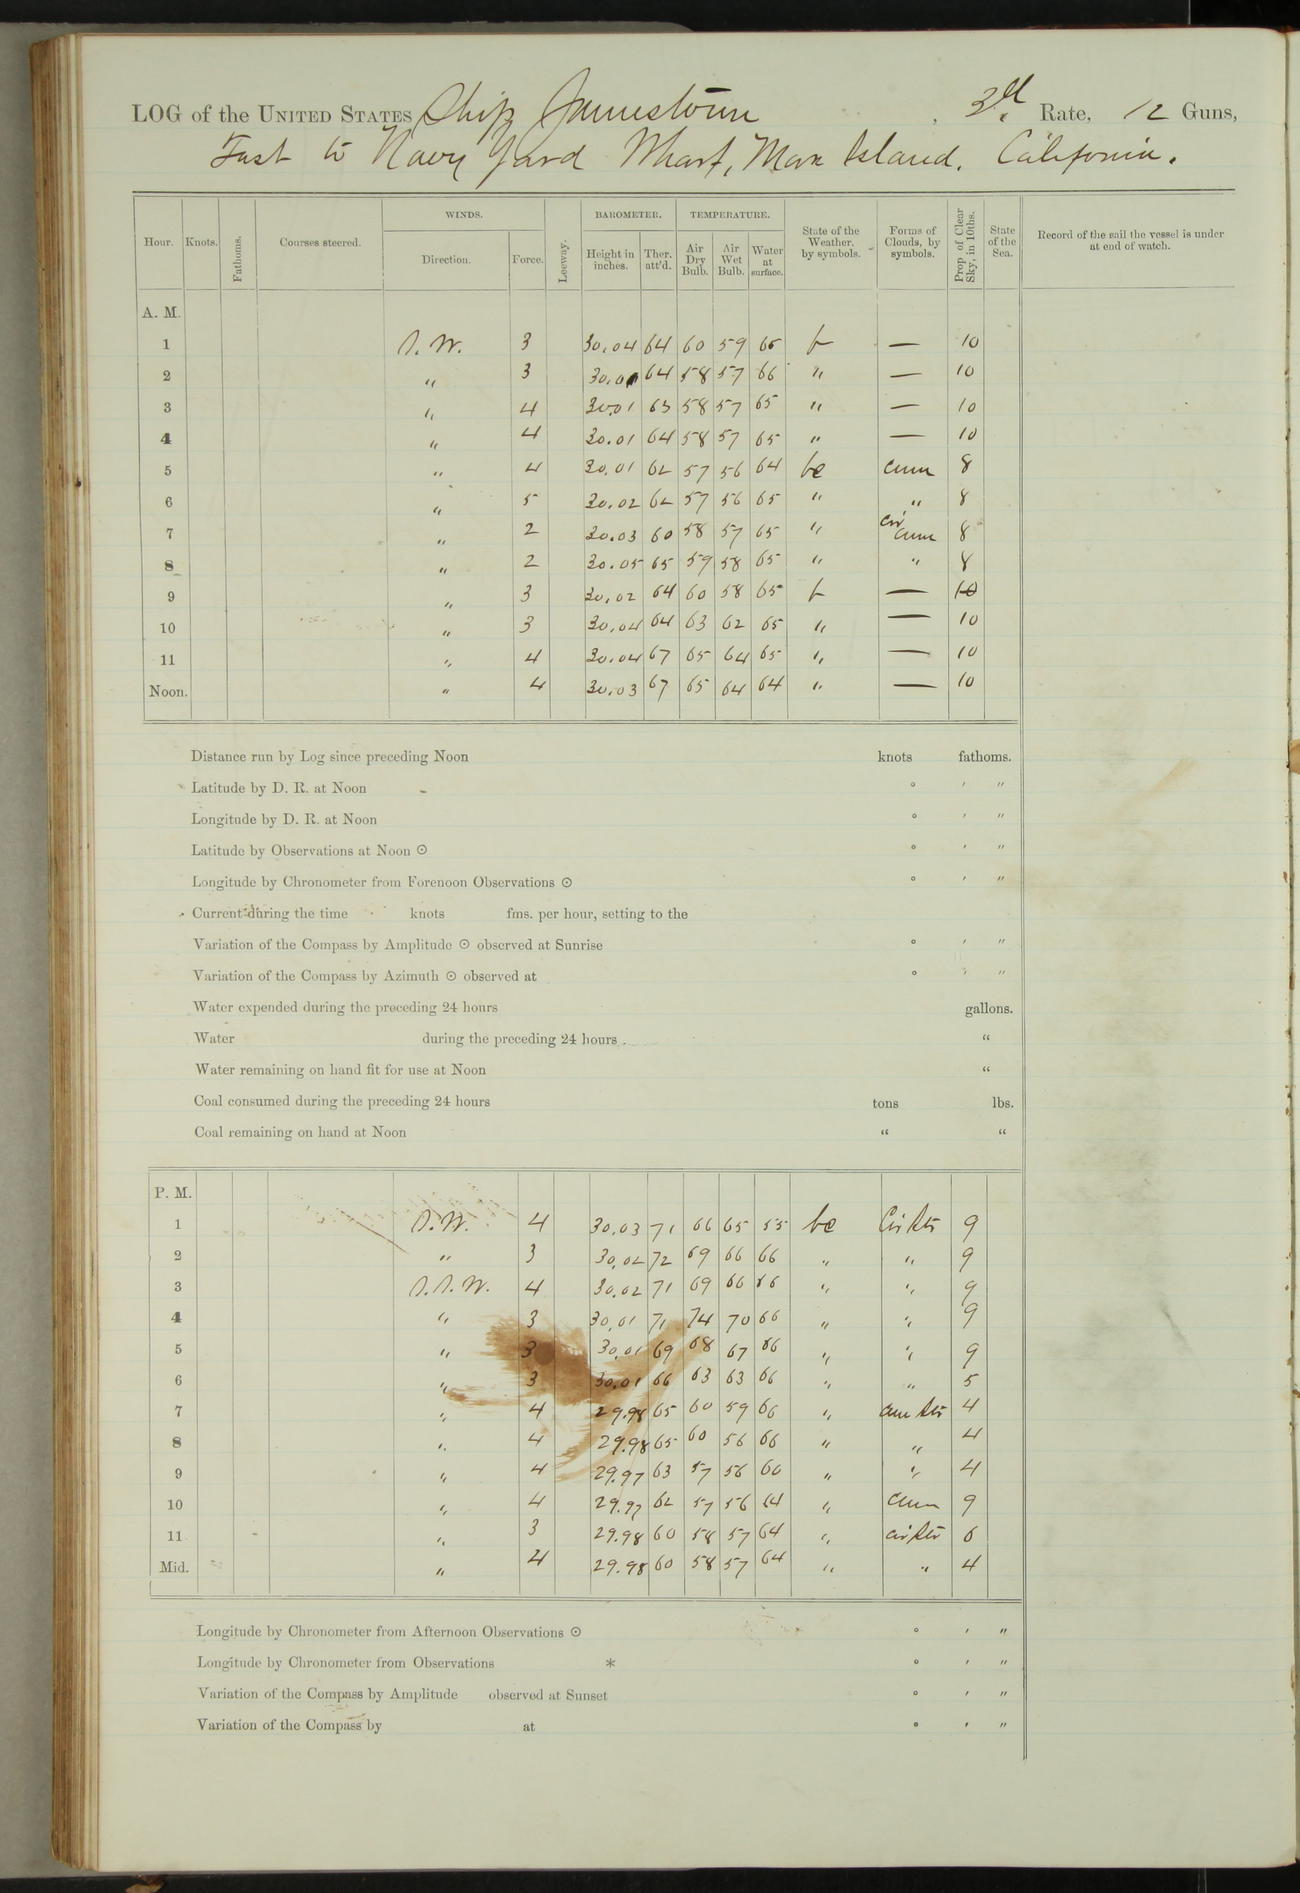 LOG of the UNITED STATES Ship Jamestown, 3d Rate, 12 Guns,
Fast to Navy Yard Wharf, Mare Island, California.
Hour. Knots. Fathoms. Courses steered. WINDS. Direction. Force. Leeway. BAROMETER. Height in inches. Ther. att'd. TEMPERATURE. Air Dry Bulb. Air Wet Bulb. Water at surface. State of the Weather, by symbols. Forms of Clouds, by symbols. Prop of Clear Sky, in 10ths. State of the Sea. Record of the sail the vessel is under at end of watch.
A. M.
1 S.W. 3 30.04 64 60 59 65 b — 10
2 " 3 30.0 64 58 57 66 " — 10
3 " 4 30.01 63 58 57 65 " — 10
4 " 4 30.01 64 58 57 65 " — 10
5 " 4 30.01 62 57 56 64 bc cum 8
6 " 5 30.02 62 57 56 65 " " 8
7 " 2 30.03 60 58 57 65 " cir cum 8
8 " 2 30.05 65 59 58 65 " " 8
9 " 3 30.02 64 60 58 65 b — 10
10 " 3 30.04 64 63 62 65 " — 10
11 " 4 30.04 67 65 64 65 " — 10
Noon. " 4 30.03 67 65 64 64 " — 10
Distance run by Log since preceding Noon knots fathoms.
Latitude by D. R. at Noon ° ' "
Longitude by D. R. at Noon ° ' "
Latitude by Observations at Noon ☉ ° ' "
Longitude by Chronometer from Forenoon Observations ☉ ° ' "
Current during the time knots fms. per hour, setting to the
Variation of the Compass by Amplitude ☉ observed at Sunrise ° ' "
Variation of the Compass by Azimuth ☉ observed at ° ' "
Water expended during the preceding 24 hours gallons.
Water during the preceding 24 hours "
Water remaining on hand fit for use at Noon "
Coal consumed during the preceding 24 hours tons lbs.
Coal remaining on hand at Noon " "
P. M.
1 S.W. 4 30.03 71 66 65 55 bc Cir Str 9
2 " 3 30.02 72 69 66 66 " " 9
3 S.S.W. 4 30.02 71 69 66 66 " " 9
4 " 3 30.01 71 74 70 66 " " 9
5 " 3 30.01 69 68 67 66 " " 9
6 " 3 30.01 66 63 63 66 " " 5
7 " 4 29.98 65 60 59 66 " cum Str 4
8 " 4 29.98 65 60 56 66 " " 4
9 " 4 29.97 63 57 56 66 " " 4
10 " 4 29.97 62 57 56 64 " cum 9
11 " 3 29.98 60 58 57 64 " cir Str 6
Mid. " 4 29.98 60 58 57 64 " " 4
Longitude by Chronometer from Afternoon Observations ☉ ° ' "
Longitude by Chronometer from Observations * ° ' "
Variation of the Compass by Amplitude observed at Sunset ° ' "
Variation of the Compass by at ° ' "